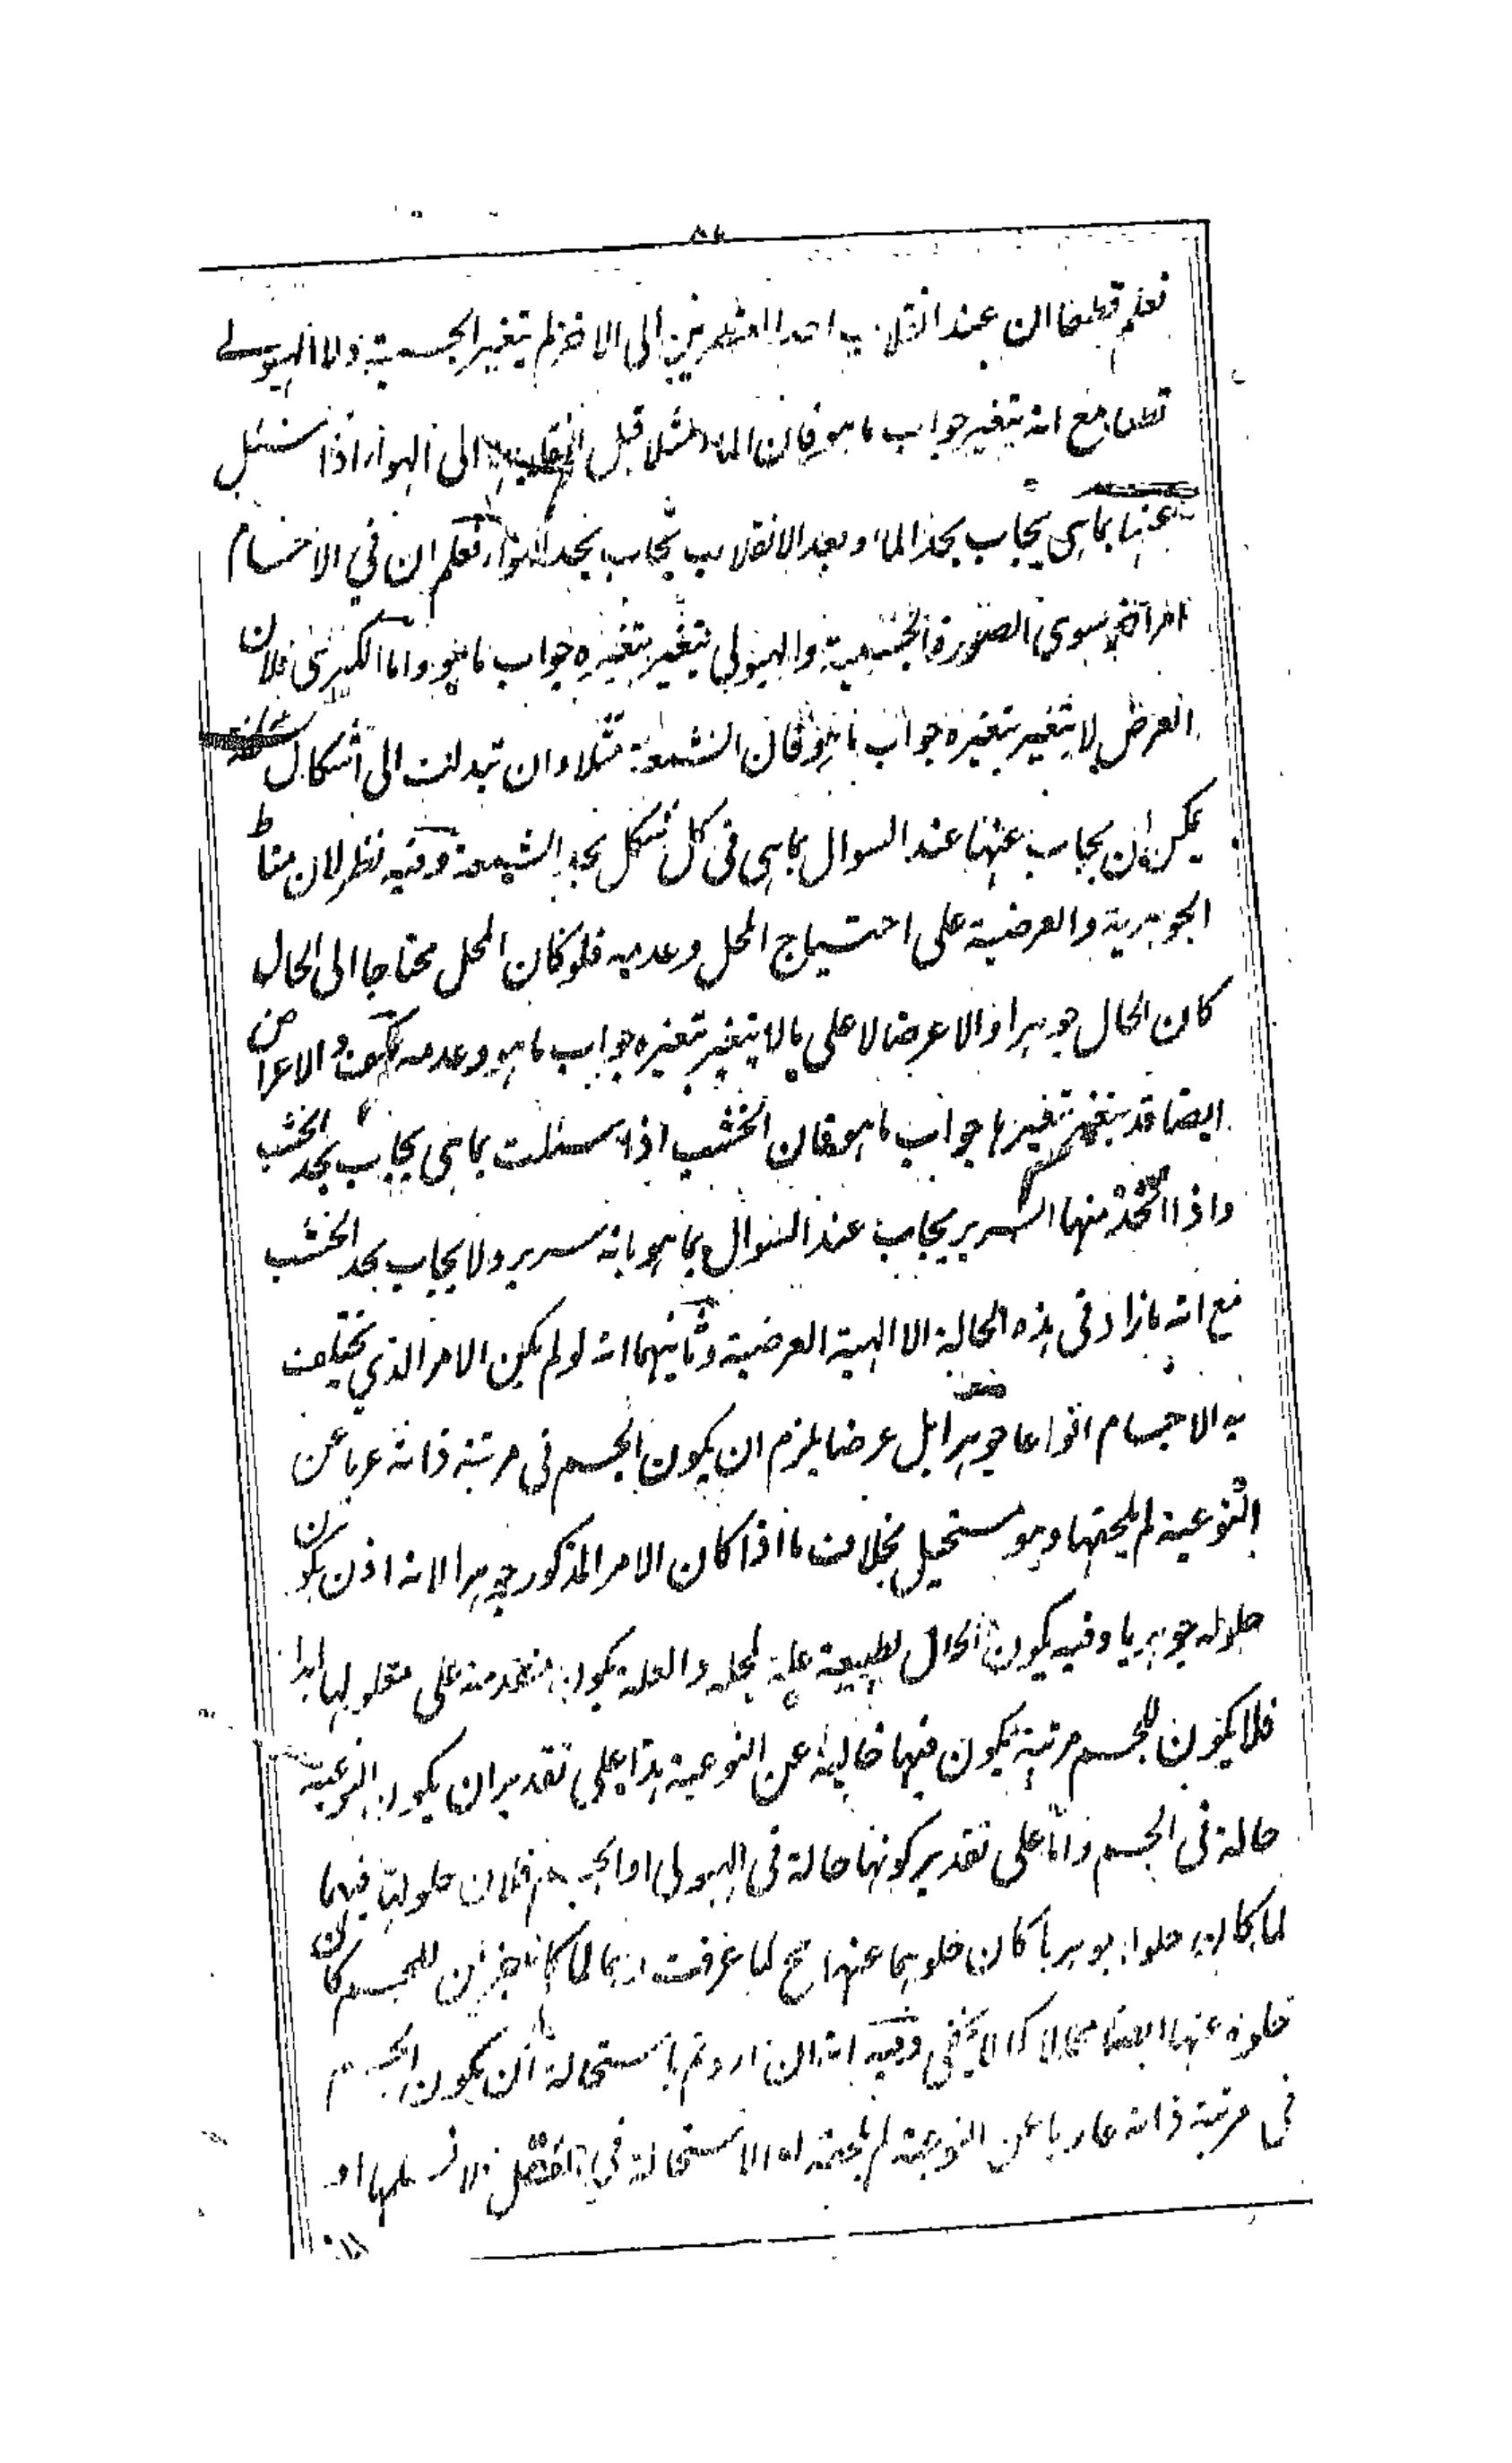 نعلم قطعا ان عند انقلاب احد العنصرين الى الاخر لم يتغير الجسمية ولا الهيولى
قطعا مع انه يتغير جواب ما هو فان الماء مثلا قبل انقلابها الى الهواء اذا سئل
عنها بما هى يجاب بحد الماء وبعد الانقلاب يجاب بحد الهواء فعلم ان في الاجسام
امرا اخر سوى الصورة الجسمية والهيولى يتغير بتغيره جواب ما هو واما الكبرى فلان
العرض لا يتغير بتغيره جواب ما هو فان الشمعة مثلا وان تبدلت الى اشكال مختلفة
يمكن ان يجاب عنها عند السوال بما هى فى كل شكل بحد الشمعة وفيه نظر لان مناط
الجوهرية والعرضية على احتياج المحل وعدمه فلو كان المحل محتاجا الى الحال
كان الحال جوهرا والا عرضا لا على ما لا يتغير بتغيره جواب ما هو وعدمه كيف والاعراض
ايضا قد يتغير بتغيرها جواب ما هو فان الخشب اذا سئلت بما هى يجاب بحد الخشب
واذا اتخذ منها السرير يجاب عند السوال بما هو بانه سرير ولا يجاب بحد الخشب
مع انه ما زاد فى هذه الحالة الا الهيئة العرضية وثانيهما انه لو لم يكن الامر الذي يختلف
به الاجسام انواعا جوهرا بل عرضا يلزم ان يكون الجسم فى مرتبة ذاته عريا عن
النوعية لم يلحقها وهو مستحيل بخلاف ما اذا كان الامر المذكور جوهرا لانه اذن يكون
حلوله جوهريا وفيه يكون الحال لطبيعة علة لمحله والعلة يكون متقدمة على معلولها ابدا
فلا يكون للجسم مرتبة يكون فيها خالية عن النوعية هذا على تقدير ان يكون النوعية
حالة فى الجسم واما على تقدير كونها حالة فى الهيولى او الجسم فلان حلولها فيهما
لما كان حلولا جوهريا كان خلوهما عنها مح لما عرفت وهما لما كانا جزئين للجسم كان
خلوه عنها ايضا محالا كما لا يخفى وفيه انه ان اردتم باستحالة ان يكون الجسم
فى مرتبة ذاته عاريا عن النوعية لم يلحقه الاستحالة في فلا نسلمها او